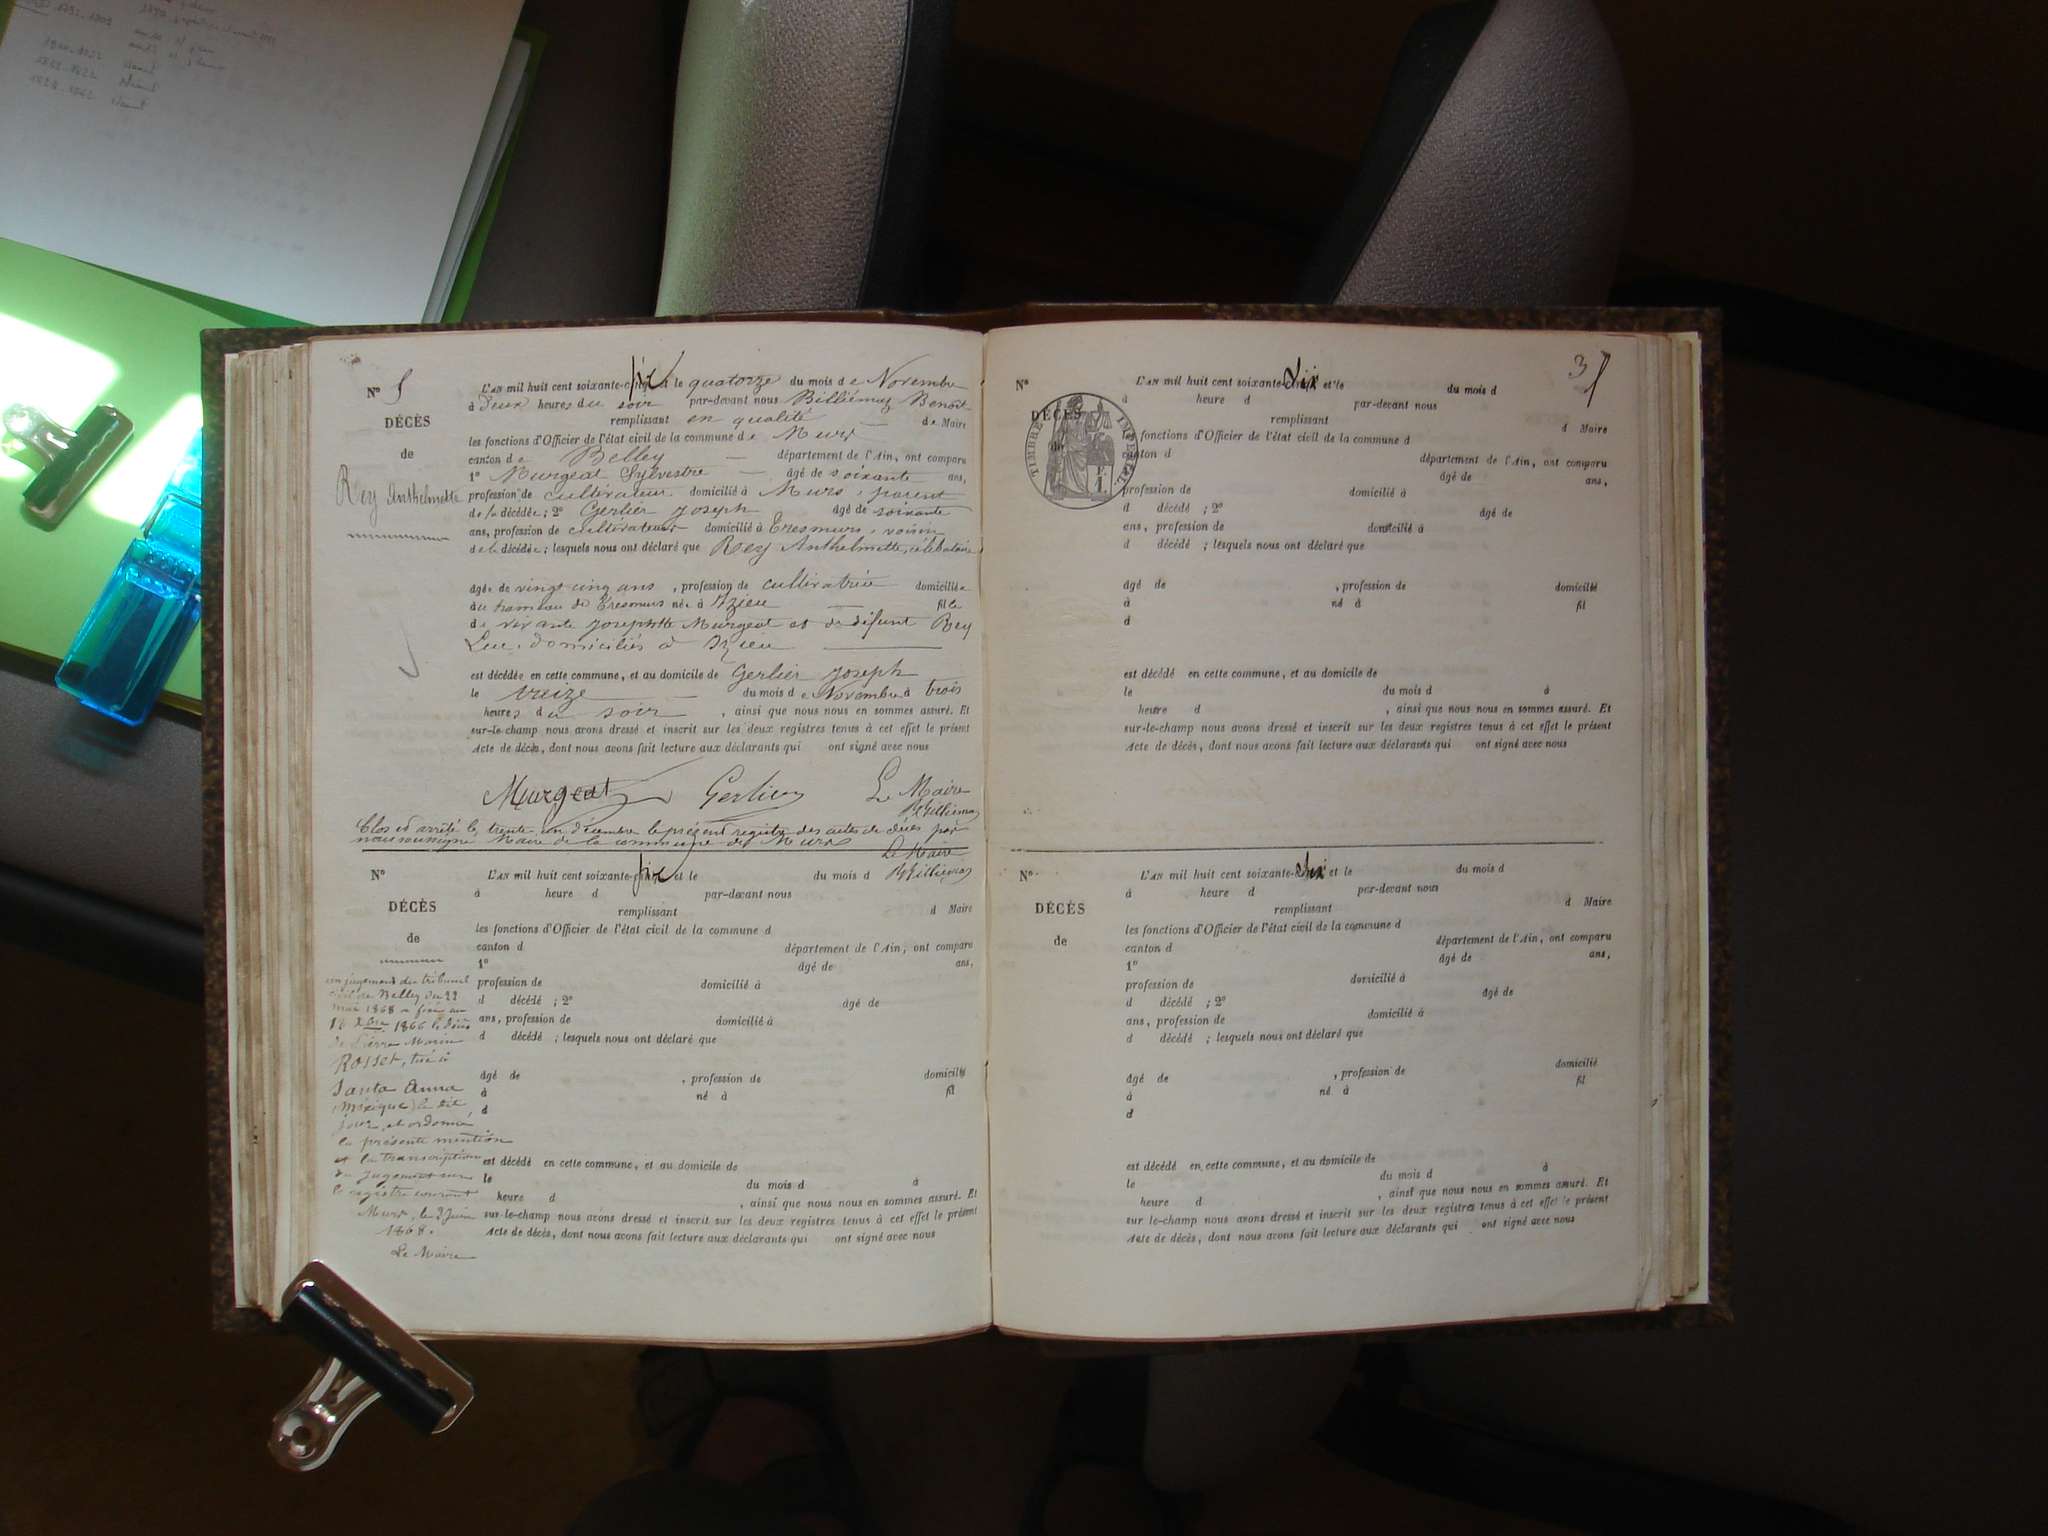 Nº 5
DÉCÈS
de
Rey Anthelmette
L'AN mil huit cent soixante-six et le quatorze du mois de Novembre
à Deux heures du soir par-devant nous Billiémaz Benoit
remplissant en qualité de Maire
les fonctions d'Officier de l'état civil de la commune de Murs
canton de Belley département de l'Ain, ont comparu
1º Murgeat Sylvestre âgé de soixante ans,
profession de cultivateur domicilié à Murs, parent
de la décédée; 2º Gerlier Joseph âgé de soixante
ans, profession de cultivateur domicilié à Eresmurs, voisin
de la décédée; lesquels nous ont déclaré que Rey Anthelmette, célibataire
âgée de vingt cinq ans, profession de cultivatrice domiciliée
au hameau de Eresmurs née à Izieu fille
de vivante Josephte Murgeat et de défunt Rey
Luc, domiciliés à Izieu
est décédée en cette commune, et au domicile de Gerlier Joseph
le treize du mois de Novembre à trois
heures du soir, ainsi que nous nous en sommes assuré. Et
sur-le-champ nous avons dressé et inscrit sur les deux registres tenus à cet effet le présent
Acte de décès, dont nous avons fait lecture aux déclarants qui ont signé avec nous
Murgeat Gerlier Le Maire
Billiemaz
Clos et arrêté le trente un décembre le présent registre des actes de décès par
nous soussigné Maire de la commune de Murs
Le Maire
Billiemaz
Nº
DÉCÈS
de
un jugement du tribunal
civil de Belley du 22
mai 1868 a fixé au
18 Xbre 1866 le décès
de Pierre Marin
Rosset, tué à
Santa Anna
(Mexique) le dit
jour, et ordonné
la présente mention
et la transcription
du jugement sur
le registre courant
Murs, le 3 Juin
1868.
Le Maire
L'AN mil huit cent soixante-six et le du mois d
à heure d par-devant nous
remplissant d Maire
les fonctions d'Officier de l'état civil de la commune d
canton d département de l'Ain, ont comparu
1º âgé de ans,
profession de domicilié à
d décédé ; 2º âgé de
ans, profession de domicilié à
d décédé ; lesquels nous ont déclaré que
âgé de , profession de domicilié
à né à fil
d
est décédé en cette commune, et au domicile de
le du mois d à
heure d , ainsi que nous nous en sommes assuré. Et
sur-le-champ nous avons dressé et inscrit sur les deux registres tenus à cet effet le présent
Acte de décès, dont nous avons fait lecture aux déclarants qui ont signé avec nous
3
Nº
DÉCÈS
de
TIMBRE IMPÉRIAL
F.
1.
L'AN mil huit cent soixante-six et le du mois d
à heure d par-devant nous
remplissant d Maire
les fonctions d'Officier de l'état civil de la commune d
canton d département de l'Ain, ont comparu
âgé de ans,
profession de domicilié à
d décédé ; 2º âgé de
ans, profession de domicilié à
d décédé ; lesquels nous ont déclaré que
âgé de , profession de domicilié
à né à fil
d
est décédé en cette commune, et au domicile de
le du mois d à
heure d , ainsi que nous nous en sommes assuré. Et
sur-le-champ nous avons dressé et inscrit sur les deux registres tenus à cet effet le présent
Acte de décès, dont nous avons fait lecture aux déclarants qui ont signé avec nous
Nº
DÉCÈS
de
L'AN mil huit cent soixante-six et le du mois d
à heure d par-devant nous
remplissant d Maire
les fonctions d'Officier de l'état civil de la commune d
canton d département de l'Ain, ont comparu
1º âgé de ans,
profession de domicilié à
d décédé ; 2º âgé de
ans, profession de domicilié à
d décédé ; lesquels nous ont déclaré que
âgé de , profession de domicilié
à né à fil
d
est décédé en cette commune, et au domicile de
le du mois d à
heure d , ainsi que nous nous en sommes assuré. Et
sur-le-champ nous avons dressé et inscrit sur les deux registres tenus à cet effet le présent
Acte de décès, dont nous avons fait lecture aux déclarants qui ont signé avec nous